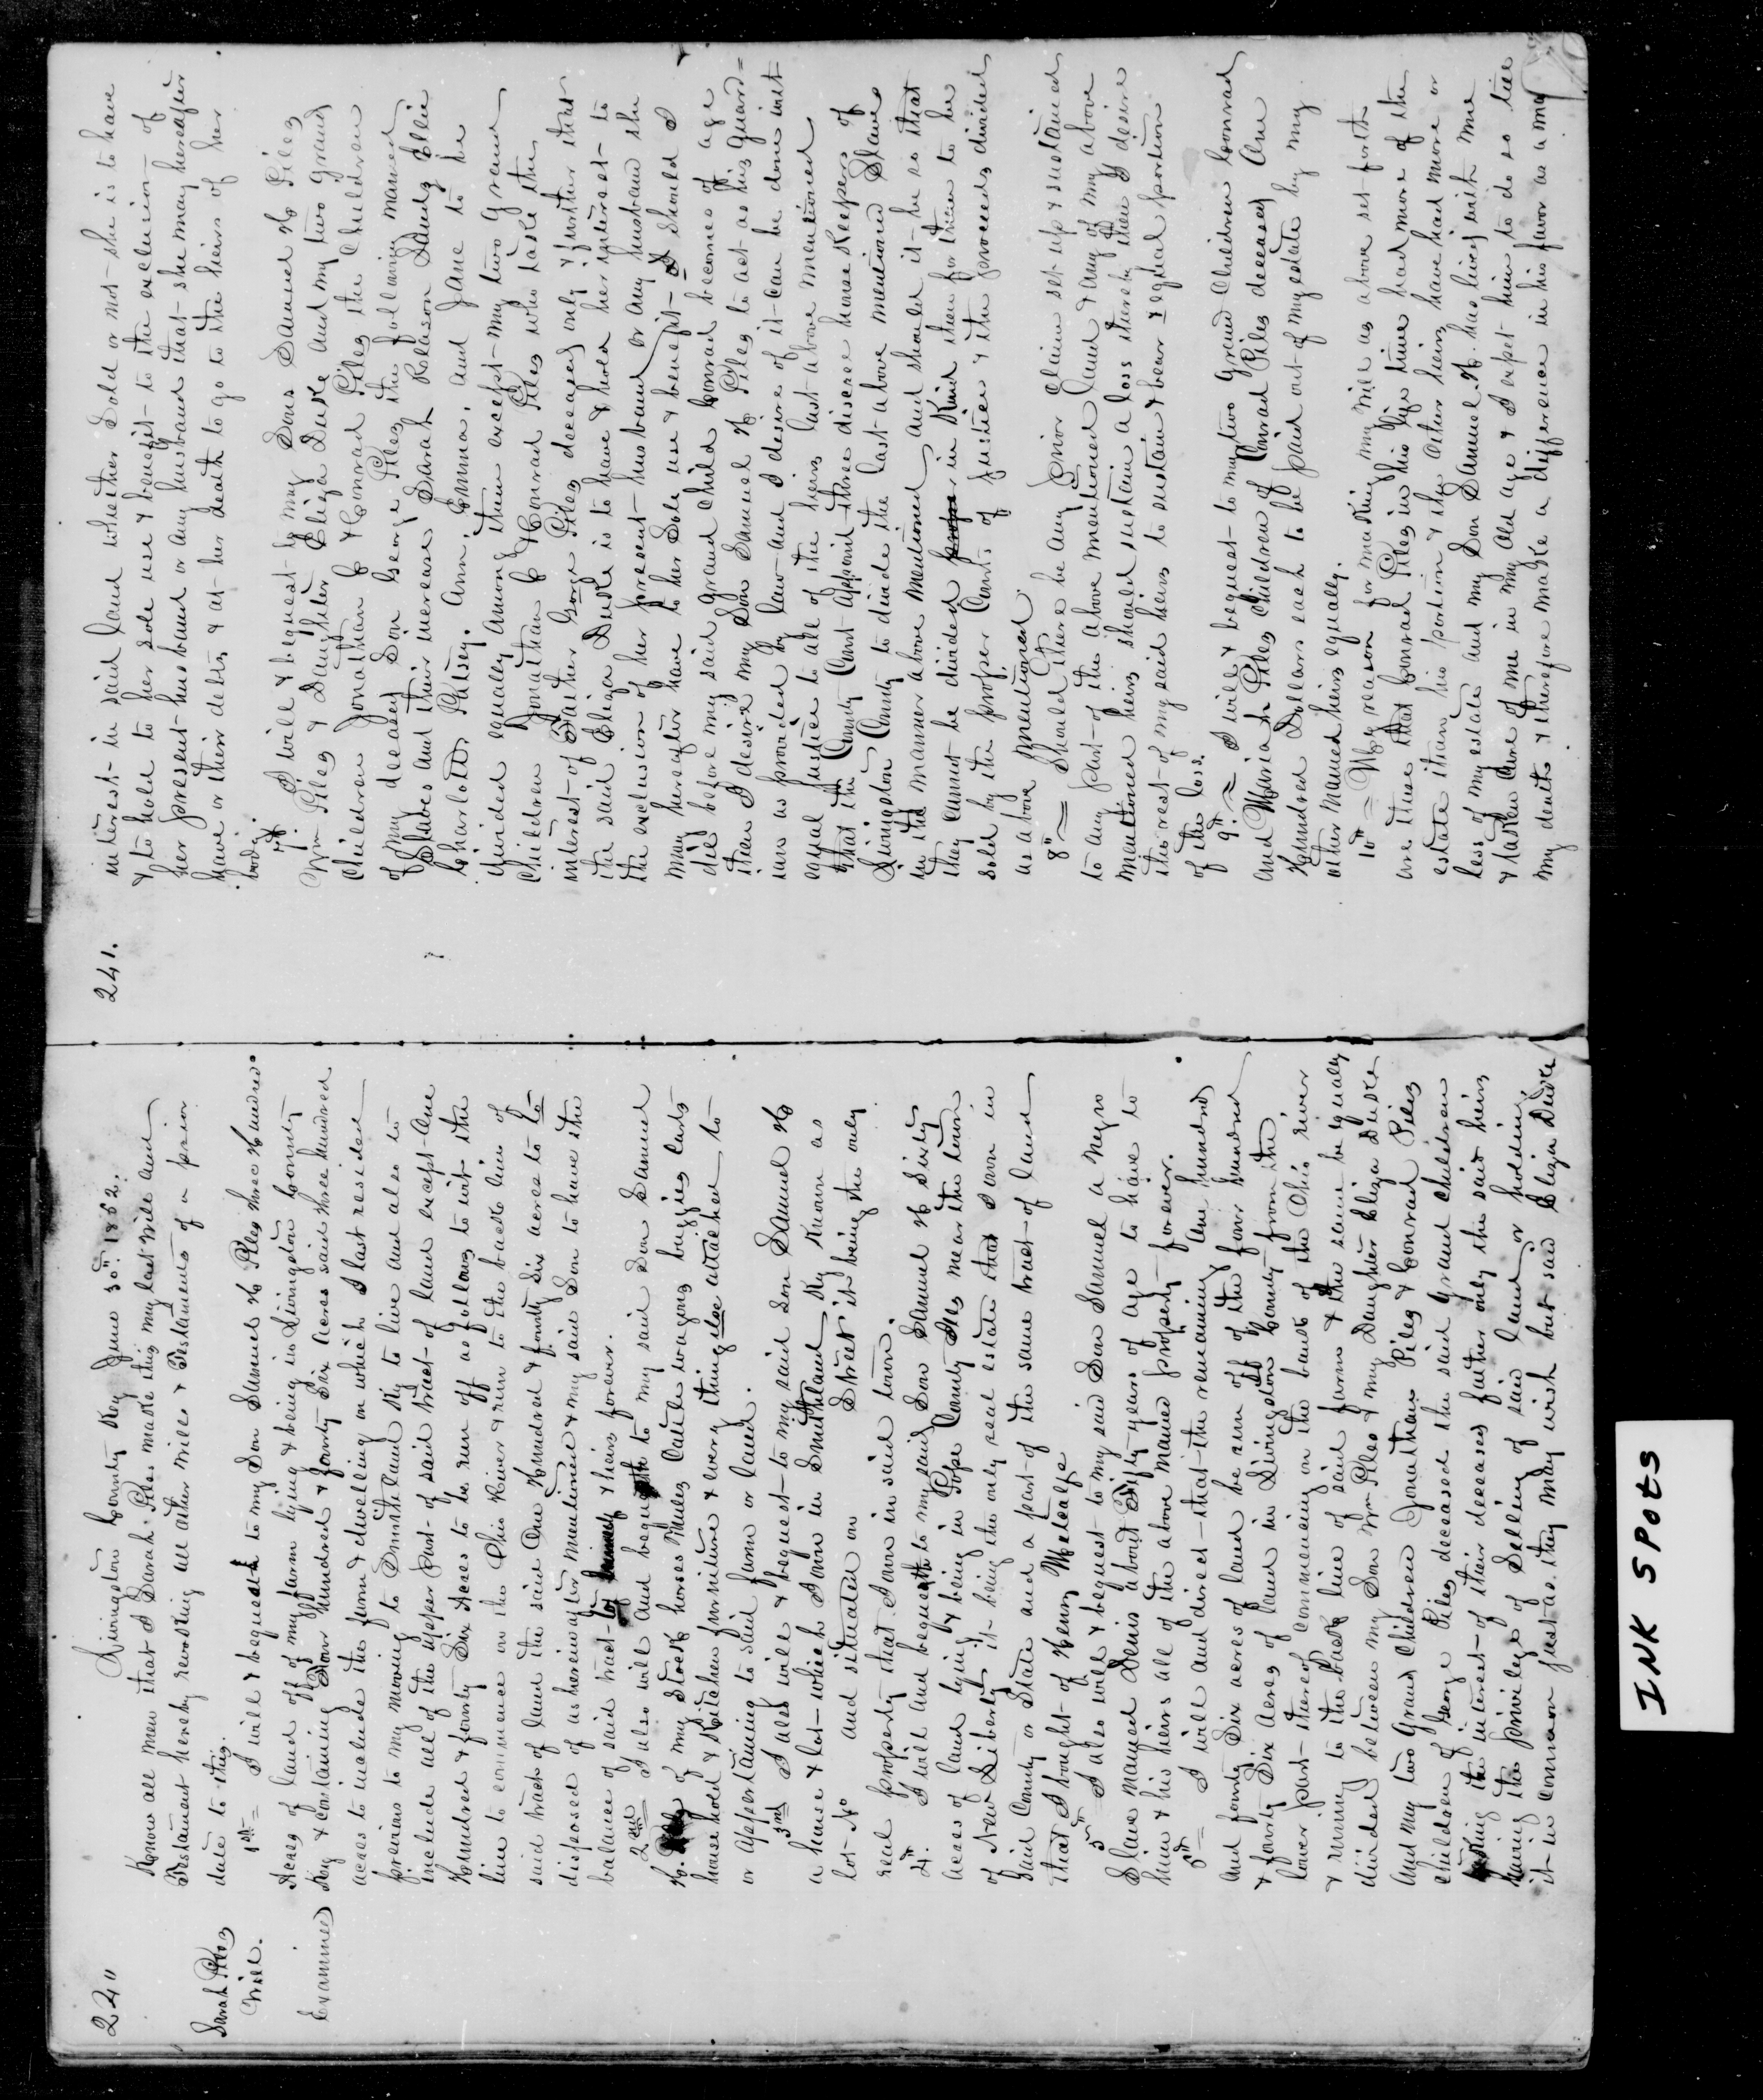 22"
Livingston County Key June 30". 1852.
Sarah Piles
Will.
Examined
Know all men that I Sarah Piles make this my last Will and
Testament hereby revoking all other Wills & Testaments of a prior
date to this.
1st = I will & bequeath to my Son Samuel H Piles three Hundred
Acres of land off of my farm lying & being in Livingston County
Ky & containing Four hundred & forty Six acres said three hundred
acres to include the farm & dwelling on which I last resided
previous to my moving to Smithland Ky to live and also to
include all of the upper part of said tract of land except One
Hundred & forty Six Acres to be run off as follows to wit the
line to commence on the Ohio River & run to the back line of
said tract of land the said One Hundred & forty Six acres to be
disposed of as hereinafter mentioned & my said Son to have the
balance of said tract & heirs forever.
2nd = I also will and bequeath to my said Son Samuel
H. of my Stock horses Mules Cattle wagons buggies carts
house hold & Kitchen furniture & every thing else attached to
or appertaining to said farm or land.
3rd I also will & bequest to my said Son Samuel H
a house & lot which I own in Smithland Ky Known as
lot No and situated on Street it being the only
real property that I own in said town.
4th. I will and bequeath to my said Son Samuel H Sixty
acres of land lying & being in Pope County Ills near the town
of New Liberty it being the only real estate that I own in
said County or State and a part of the same tract of land
that I bought of Henry Metcalfe
5th = I also will & bequest to my said Son Samuel a Negro
Slave named Lewis about Fifty years of age to have to
him & his heirs all of the above named property forever.
6th = I will and direct that the remaining One hundred
and forty Six acres of land be run off of the four hundred
& forty Six Acres of land in Livingston County from the
lower part thereof commencing on the bank of the Ohio river
& running to the back line of said farm & the same be equally
divided between my Son Wm Piles & my Daughter Eliza Duke
and my two Grand Children Jonathan Piles & Conrad Piles
children of George Piles deceased the said grand children
taking the interest of their deceased father only the said heirs
having the privilege of Selling of said land or holding
it in common just as they may wish but said Eliza Duke
241.
interest in said land whether Sold or not she is to have
& to hold to her sole use & benefit to the exclusion of
her present husband or any husband that she may hereafter
have or their debts & at her death to go to the heirs of her
body.
7th. I will & bequest to my Sons Samuel H Piles
Wm Piles & Daughter Eliza Duke and my two Grand
Children Jonathan C & Conrad Piles the children
of my deceased Son George Piles the following named
Slaves and their increase Sarah Rolason Lander Ellie
Charlotte Patsey. Ann. Emma. and Jane to be
divided equally among them except my two Grand
Children Jonathan C & Conrad Piles who take the
interest of Father George Piles deceased only & further that
the said Eliza Duke is to have & hold her interest to
the exclusion of her present husband or any husband she
may hereafter have to her Sole use & benefit & Should I
die before my said grand Child Conrad becomes of age
then I desire my Son Samuel H Piles to act as his guard=
ian as provided by law and I desire if it can be done with
equal justice to all of the heirs last above mentioned
that the County Court appoint three discree house Keepers of
Livingston County to divide the last above mentioned Slaves
in the manner above mentioned and should it be so that
they cannot be divided in Kind then for them to be
sold by the proper Courts of Justice & the proceeds divided
as above mentioned.
8" = Should there be any Prior Claim set up & sustained
to any part of the above mentioned land & any of my above
mentioned heirs should sustain a loss thereby then I desire
the rest of my said heirs to sustain & bear & equal portion
of the loss.
9" = I will & bequest to my two Grand Children Conrad
and Maria L Piles children of Conrad Piles deceased One
Hundred Dollars each to be paid out of my estate by my
other named heirs equally.
10" = My reason for making my Will as above set forth
are these that Conrad Piles in his life time had more of the
estate than his portion & the other heirs have had more or
less of my estate and my Son Samuel H. has lived with me
& taken Care of me in my old age & I expect him to do so till
my death & therefore make a difference in his favor as a mat
INK SPOTS